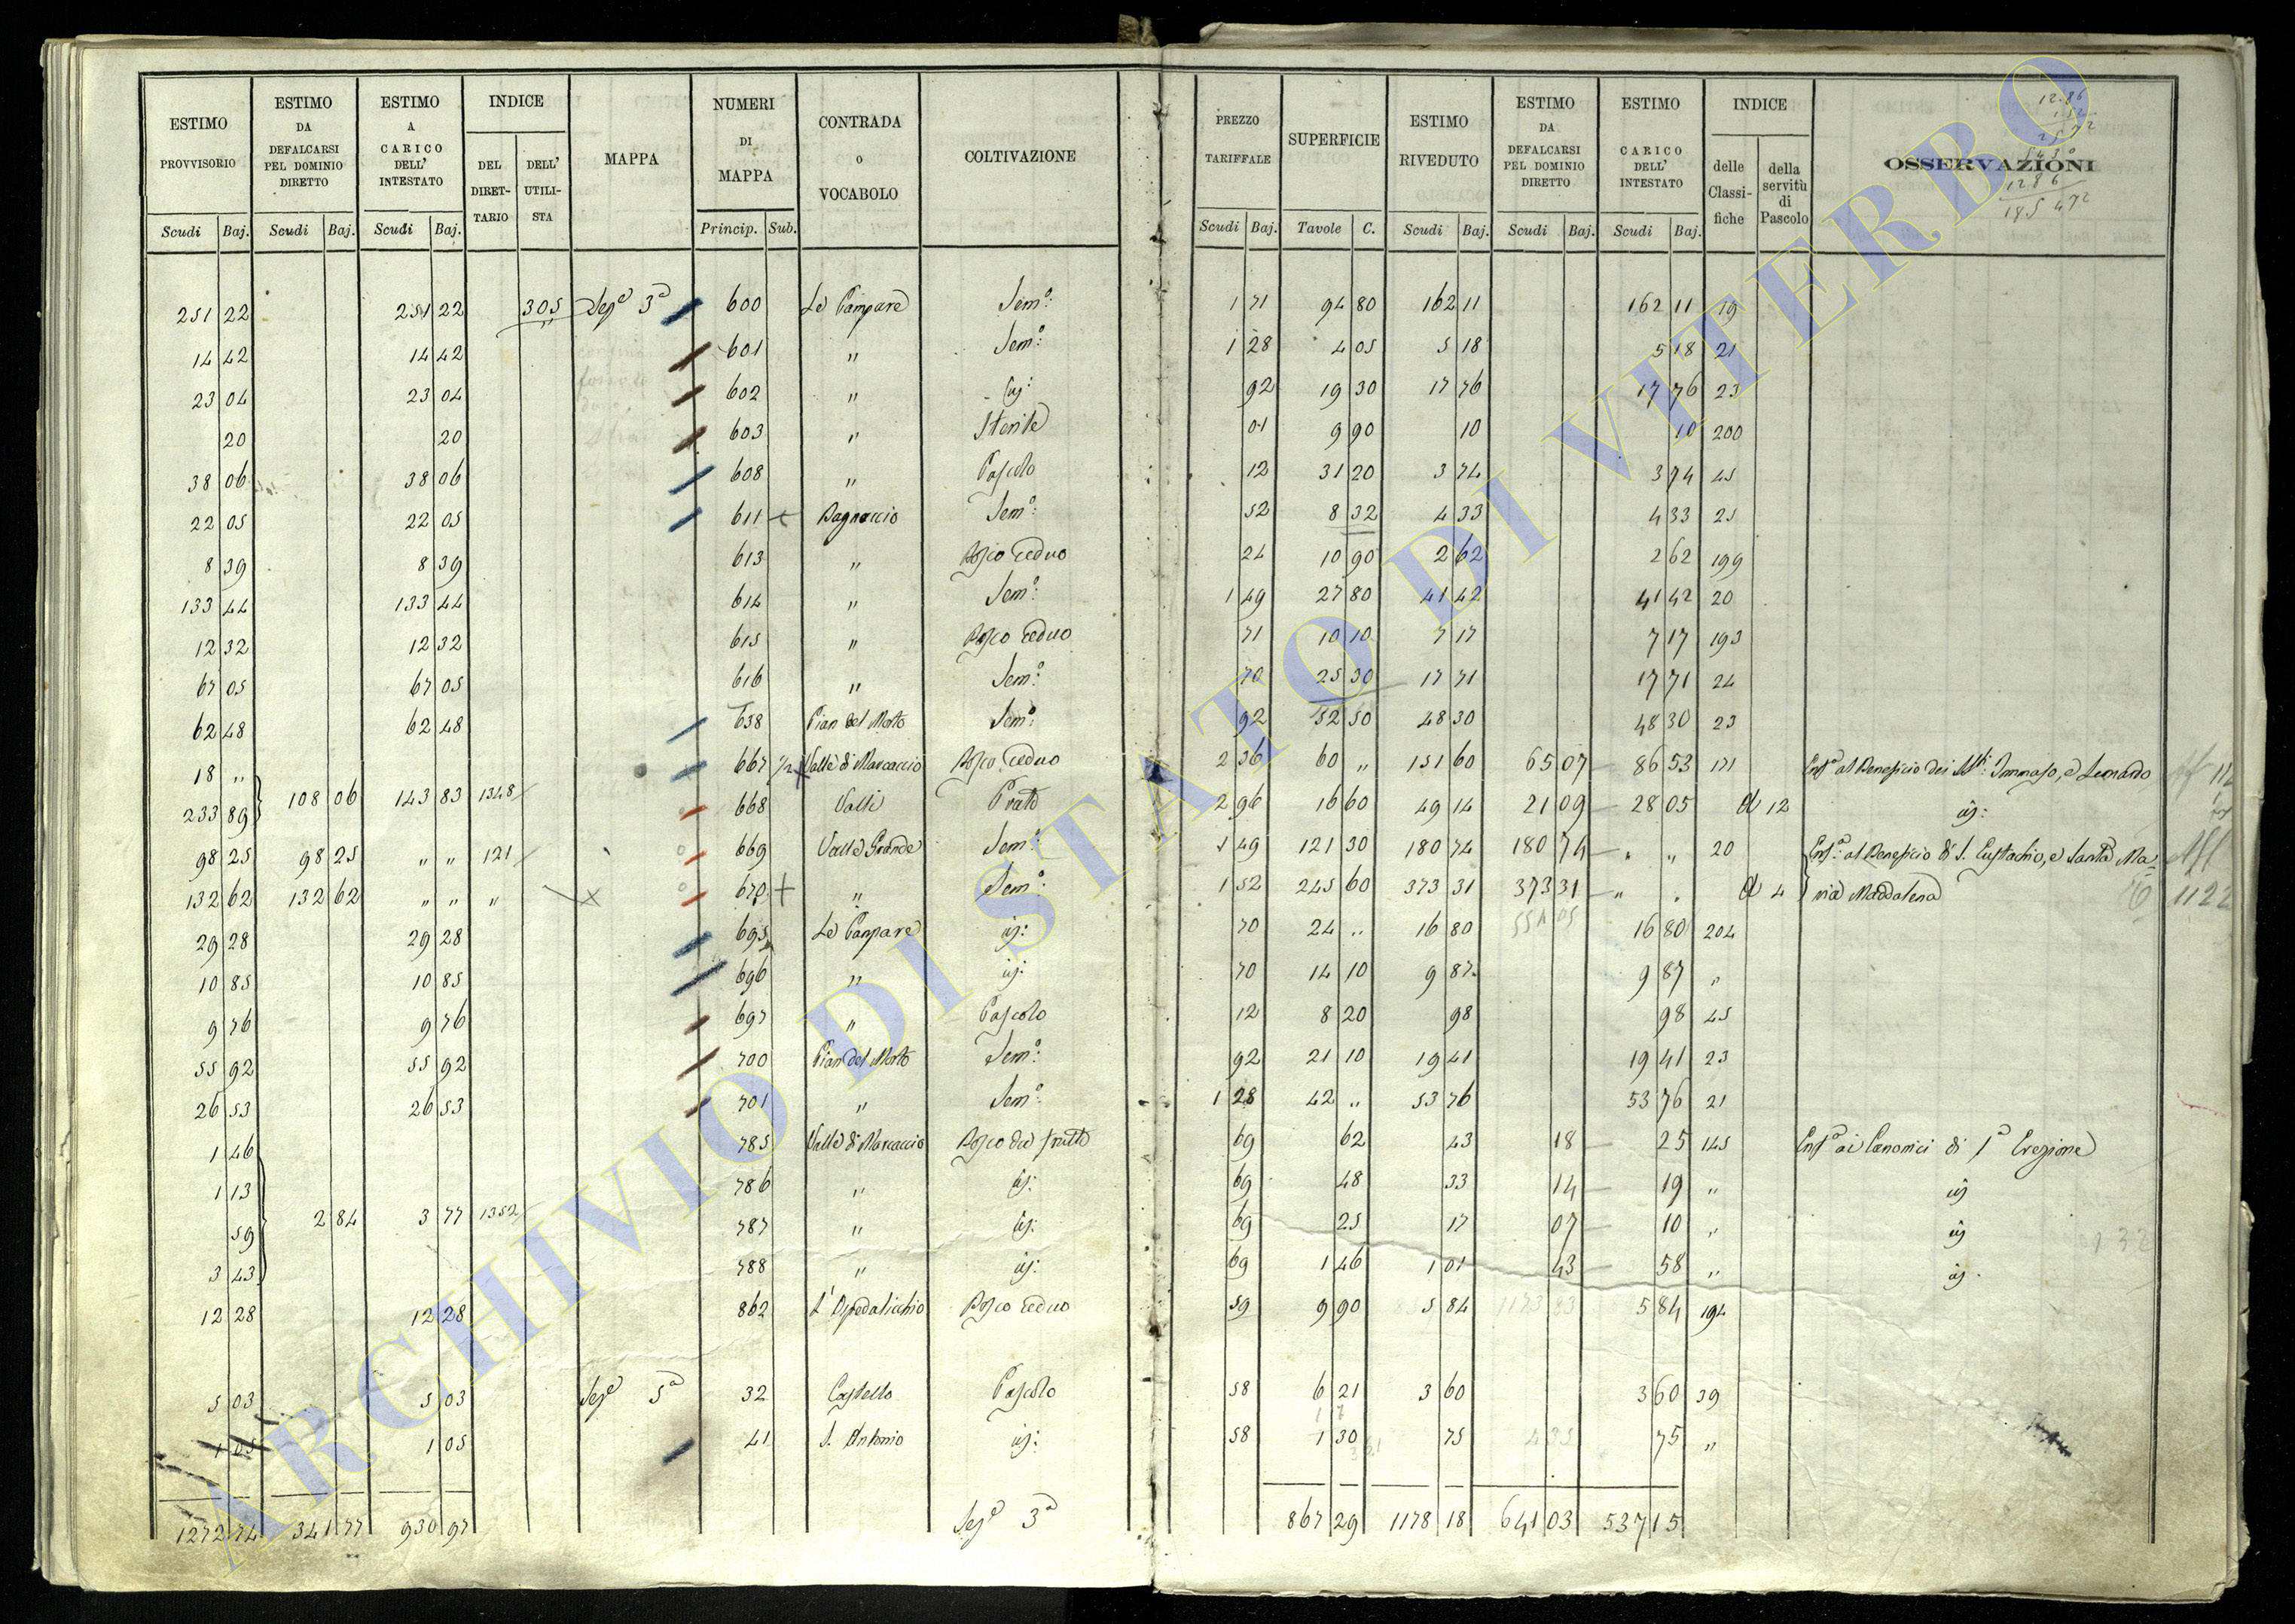 ESTIMO PROVVISORIO | ESTIMO DA DEFALCARSI PEL DOMINIO DIRETTO | ESTIMO A CARICO DELL' INTESTATO | INDICE DEL DIRETTARIO | DELL' UTILISTA | MAPPA | NUMERI DI MAPPA | CONTRADA o VOCABOLO | COLTIVAZIONE | PREZZO TARIFFALE | SUPERFICIE | ESTIMO RIVEDUTO | ESTIMO DA DEFALCARSI PEL DOMINIO DIRETTO | ESTIMO A CARICO DELL' INTESTATO | INDICE delle Classifiche | della servitù di Pascolo | OSSERVAZIONI
Scudi | Baj. | Scudi | Baj. | Scudi | Baj. | Princip. | Sub. | Scudi | Baj. | Tavole | C. | Scudi | Baj. | Scudi | Baj. | Scudi | Baj.
251 22 | 251 22 | 305 | Sez.e 3a | 600 | Le Campare | Sem.o: | 1 71 | 94 80 | 162 11 | 162 11 | 19
14 42 | 14 42 | 601 | " | Sem.o: | 1 28 | 4 05 | 5 18 | 5 18 | 21
23 04 | 23 04 | 602 | " | id: | 92 | 19 30 | 17 76 | 17 76 | 23
20 | 20 | 603 | " | Sterile | 01 | 9 90 | 10 | 10 | 200
38 06 | 38 06 | 608 | " | Pascolo | 12 | 31 20 | 3 74 | 3 74 | 45
22 05 | 22 05 | 611 | Bagnaccio | Sem.o: | 52 | 8 32 | 4 33 | 4 33 | 25
8 39 | 8 39 | 613 | " | Bosco ceduo | 24 | 10 90 | 2 62 | 2 62 | 199
133 44 | 133 44 | 614 | " | Sem.o: | 1 49 | 27 80 | 41 42 | 41 42 | 20
12 32 | 12 32 | 615 | " | Bosco ceduo | 71 | 10 10 | 7 17 | 7 17 | 193
67 05 | 67 05 | 616 | " | Sem.o: | 70 | 25 30 | 17 71 | 17 71 | 24
62 48 | 62 48 | 638 | Pian del Morto | Sem.o: | 92 | 52 50 | 48 30 | 48 30 | 23
18 " | 667 1/2 | Valle di Marcaccio | Bosco ceduo | 2 36 | 60 " | 151 60 | 65 07 | 86 53 | 171 | Enf.a al Beneficio dei SS.ti: Tommaso, e Leonardo
233 89 | 108 06 | 143 83 | 1348 | 668 | Valli | Prato | 2 96 | 16 60 | 49 14 | 21 09 | 28 05 | 12 | id:
98 25 | 98 25 | " " | 121 | 669 | Valle Grande | Sem.o: | 1 49 | 121 30 | 180 74 | 180 74 | " " | 20 | Enf.a al Beneficio di S. Eustachio, e Santa Ma
132 62 | 132 62 | " " | " | 670 | " | Sem.o: | 1 52 | 245 60 | 373 31 | 373 31 | " " | 4 | ria Maddalena | 1122
29 28 | 29 28 | 695 | Le Campare | id: | 70 | 24 " | 16 80 | 16 80 | 204
10 85 | 10 85 | 696 | " | id: | 70 | 14 10 | 9 87 | 9 87 | "
9 76 | 9 76 | 697 | " | Pascolo | 12 | 8 20 | 98 | 98 | 45
55 92 | 55 92 | 700 | Pian del Morto | Sem.o: | 92 | 21 10 | 19 41 | 19 41 | 23
26 53 | 26 53 | 701 | " | Sem.o: | 1 28 | 42 " | 53 76 | 53 76 | 21
1 46 | 785 | Valle di Marcaccio | Bosco da frutto | 69 | 62 | 43 | 18 | 25 | 145 | Enf.a ai Canonici di 1a Erezione
1 13 | 786 | " | id: | 69 | 48 | 33 | 14 | 19 | " | id
59 | 2 84 | 3 77 | 1352 | 787 | " | id: | 69 | 25 | 17 | 07 | 10 | " | id
3 43 | 788 | " | id: | 69 | 1 46 | 1 01 | 43 | 58 | " | id
12 28 | 12 28 | 862 | L'Ospedalicchio | Bosco ceduo | 59 | 9 90 | 5 84 | 5 84 | 194
5 03 | 5 03 | Sez.e 5a | 32 | Castello | Pascolo | 58 | 6 21 | 3 60 | 3 60 | 39
1 05 | 1 05 | 41 | S. Antonio | id: | 58 | 1 30 | 75 | 75 | "
1272 74 | 341 77 | 930 97 | Sez.e 3a | 867 29 | 1178 18 | 641 03 | 537 15
ARCHIVIO DI STATO DI VITERBO